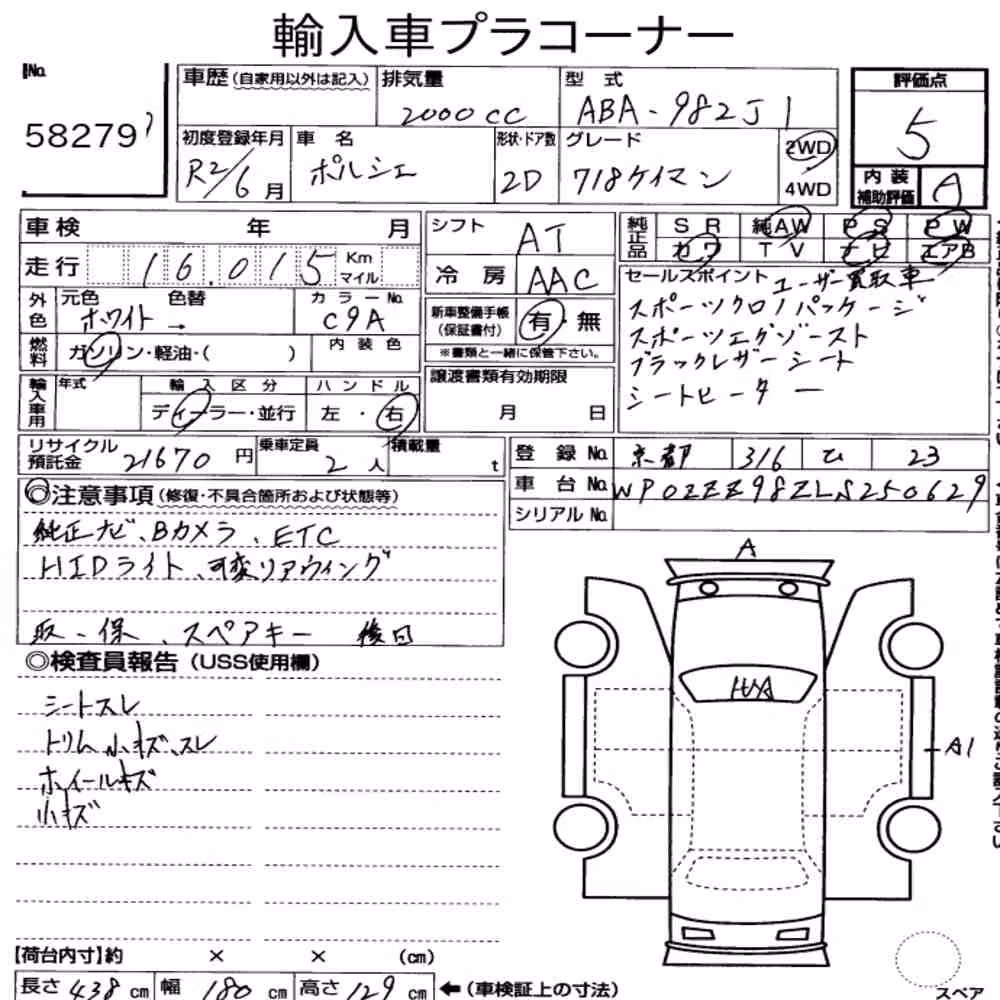 輸入車プラコーナー
No.
58279
車歴 (自家用以外は記入) 排気量 2000cc 型式 ABA-982J1
初度登録年月 R2/6月 車名 ポルシェ 形状・ドア数 2D グレード 718ケイマン 2WD 4WD
評価点 5
内装補助評価 A
車検 年 月
走行 16,015 Km マイル
シフト AT
冷房 AAC
純正品 SR 純AW PS PW
カワ TV ナビ エアB
外色 元色 ホワイト → 色替 カラーNo. C9A
燃料 ガソリン・軽油・( ) 内装色
新車整備手帳(保証書付) 有・無
※書類と一緒に保管下さい。
セールスポイント ユーザー買取車
スポーツクロノパッケージ
スポーツエグゾースト
ブラックレザーシート
シートヒーター
輸入車用 年式 輸入区分 ディーラー・並行 ハンドル 左・右
譲渡書類有効期限 月 日
リサイクル預託金 21670円 乗車定員 2人 積載量 t
登録No. 京都 316 ひ 23
車台No. WP0ZZZ98ZLS250629
シリアルNo.
◎注意事項(修復・不具合箇所および状態等)
純正ナビ、Bカメラ、ETC
HIDライト、可変リアウィング
取・保、スペアキー 後日
◎検査員報告(USS使用欄)
シートスレ
トリム小キズ、スレ
ホイールキズ
小キズ
A
A1
【荷台内寸】約 × × (cm)
長さ 438 cm 幅 180 cm 高さ 129 cm ←(車検証上の寸法)
スペア